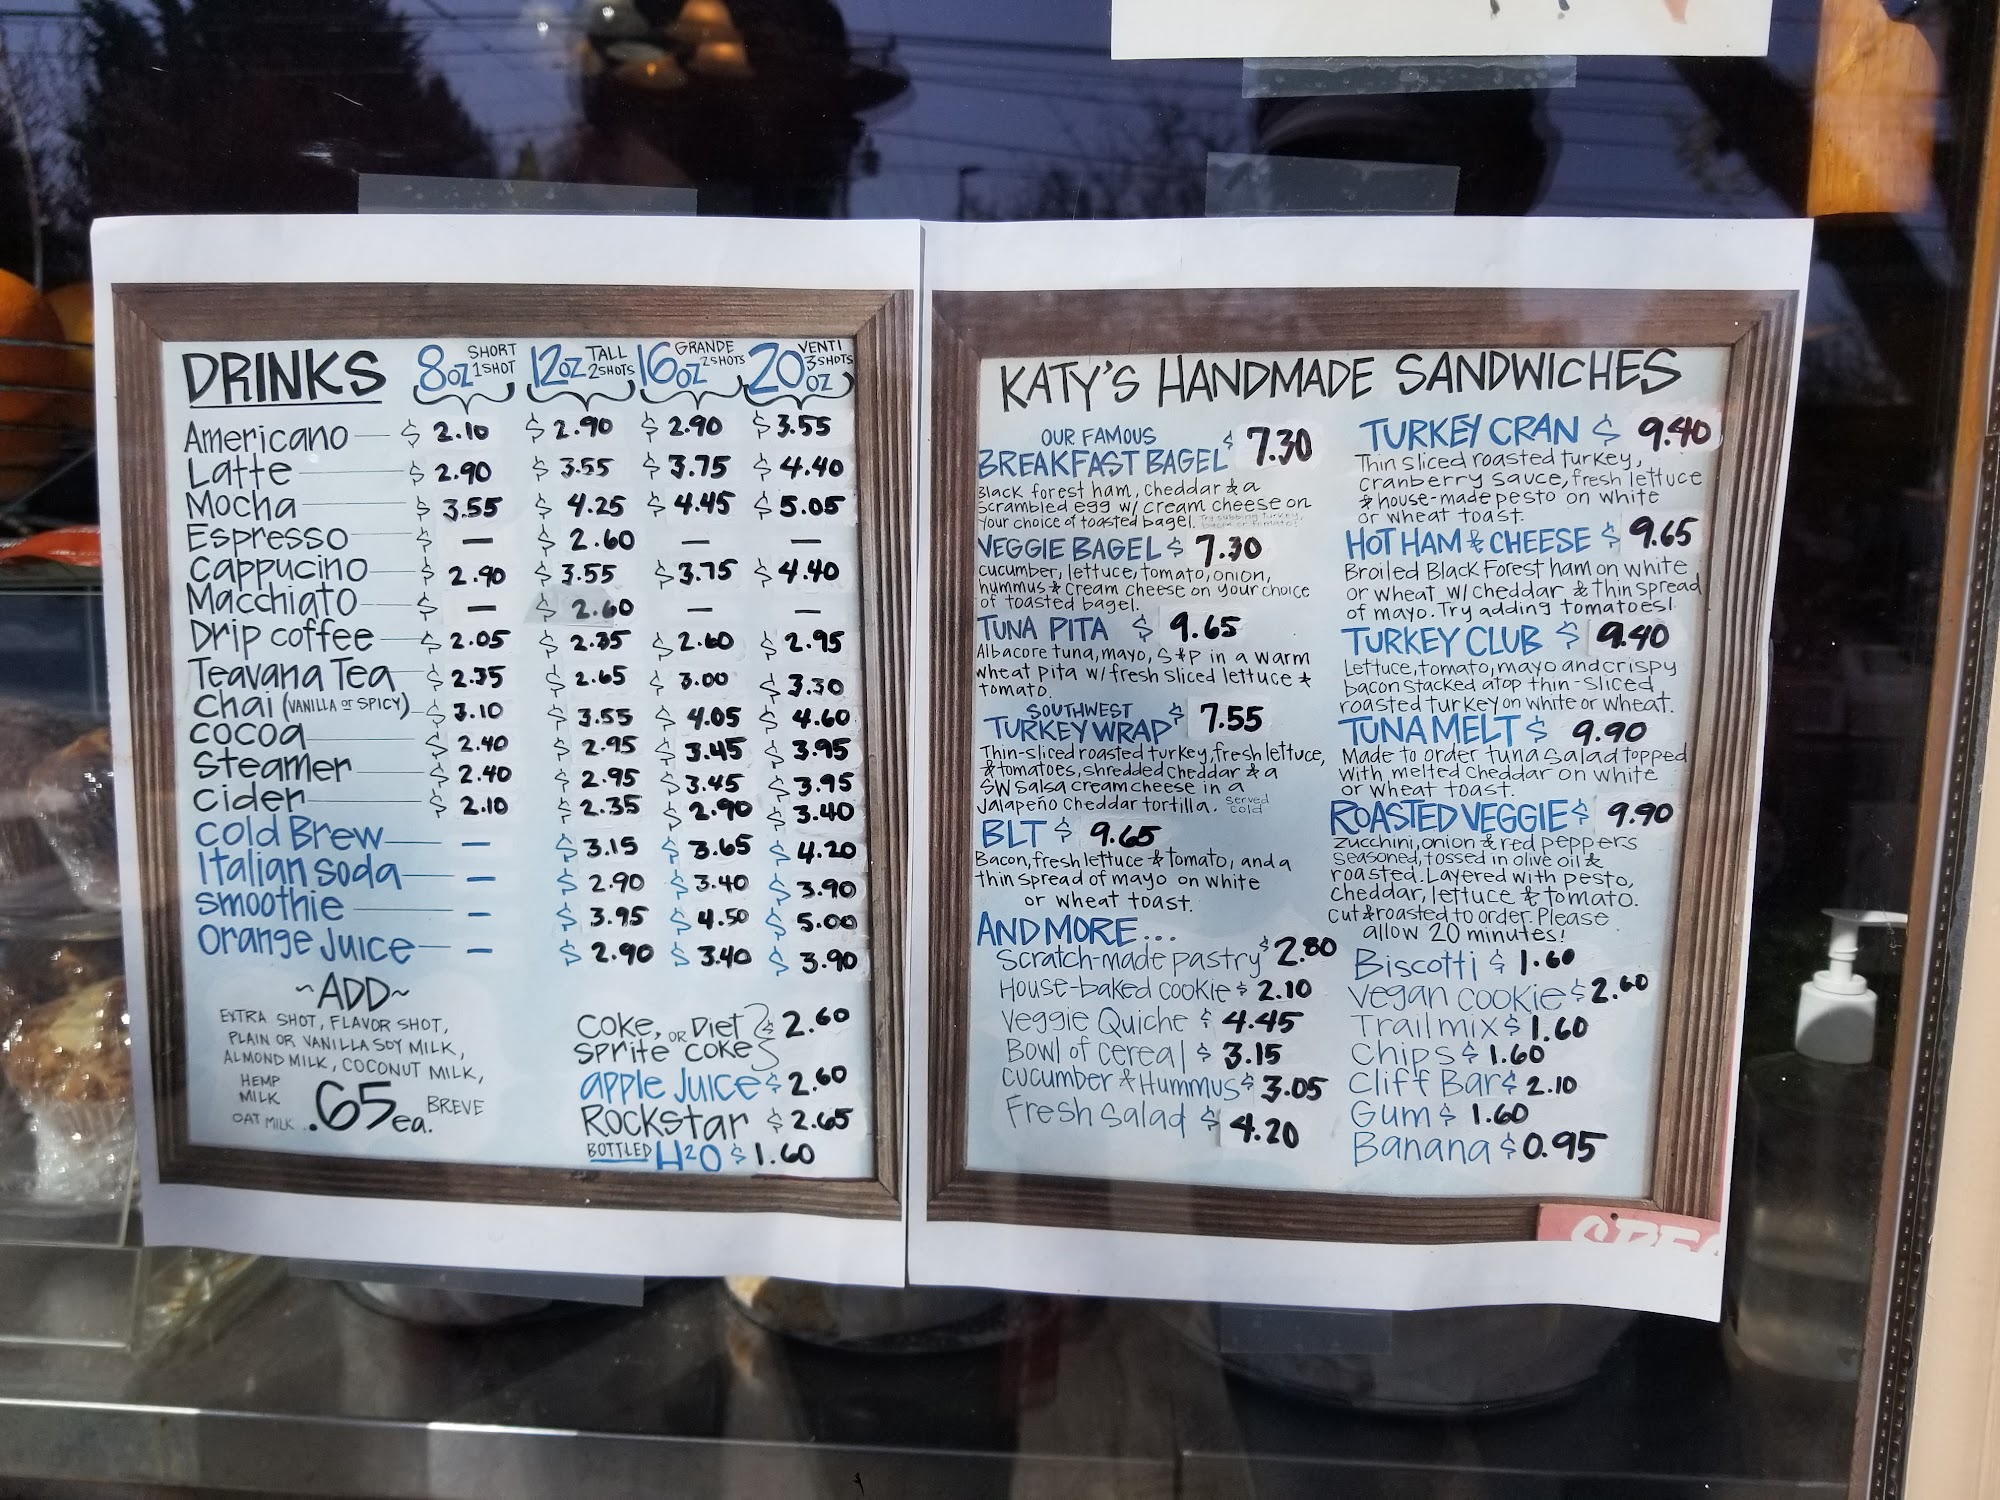 DRINKS 8oz SHORT 1SHOT 12oz TALL 2SHOTS 16oz GRANDE 2SHOTS 20oz VENTI 3SHOTS
Americano $2.10 $2.90 $2.90 $3.55
Latte $2.90 $3.55 $3.75 $4.40
Mocha $3.55 $4.25 $4.45 $5.05
Espresso $ — $2.60 — —
Cappucino $2.90 $3.55 $3.75 $4.40
Macchiato $ — $2.60 — —
Drip coffee $2.05 $2.35 $2.60 $2.95
Teavana Tea $2.35 $2.65 $3.00 $3.30
Chai (VANILLA or SPICY) $3.10 $3.55 $4.05 $4.60
Cocoa $2.40 $2.95 $3.45 $3.95
Steamer $2.40 $2.95 $3.45 $3.95
Cider $2.10 $2.35 $2.90 $3.40
Cold Brew — $3.15 $3.65 $4.20
Italian Soda — $2.90 $3.40 $3.90
Smoothie — $3.95 $4.50 $5.00
Orange Juice — $2.90 $3.40 $3.90
~ADD~
EXTRA SHOT, FLAVOR SHOT,
PLAIN OR VANILLA SOY MILK,
ALMOND MILK, COCONUT MILK,
HEMP MILK
OAT MILK .65 ea. BREVE
Coke, OR Diet
Sprite Coke $2.60
Apple Juice $2.60
Rockstar $2.65
BOTTLED H2O $1.60
KATY'S HANDMADE SANDWICHES
OUR FAMOUS
BREAKFAST BAGEL $7.30
Black forest ham, Cheddar & a
Scrambled egg w/ cream cheese on
your choice of toasted bagel. Try subbing turkey,
bacon or tomato!
VEGGIE BAGEL $7.30
Cucumber, lettuce, tomato, onion,
hummus & Cream cheese on your choice
of toasted bagel.
TUNA PITA $9.65
Albacore tuna, mayo, S+P in a warm
wheat pita w/ fresh sliced lettuce &
tomato.
SOUTHWEST
TURKEY WRAP $7.55
Thin-sliced roasted turkey, fresh lettuce,
& tomatoes, shredded cheddar & a
SW Salsa cream cheese in a
Jalapeño Cheddar tortilla. Served cold
BLT $9.65
Bacon, fresh lettuce & tomato, and a
thin spread of mayo on white
or wheat toast.
TURKEY CRAN $9.40
Thin sliced roasted turkey,
cranberry sauce, fresh lettuce
& house-made pesto on white
or wheat toast.
HOT HAM & CHEESE $9.65
Broiled Black Forest ham on white
or wheat w/ cheddar & Thin spread
of mayo. Try adding tomatoes!
TURKEY CLUB $9.40
Lettuce, tomato, mayo and crispy
bacon stacked atop thin-sliced
roasted turkey on white or wheat.
TUNA MELT $9.90
Made to order tuna salad topped
with melted cheddar on white
or wheat toast.
ROASTED VEGGIE $9.90
Zucchini, onion & red peppers
seasoned, tossed in olive oil &
roasted. Layered with pesto,
Cheddar, lettuce & tomato.
Cut & roasted to order. Please
allow 20 minutes!
AND MORE...
Scratch-made pastry $2.80
House-baked cookie $2.10
Veggie Quiche $4.45
Bowl of Cereal $3.15
Cucumber & Hummus $3.05
Fresh Salad $4.20
Biscotti $1.60
Vegan cookie $2.60
Trail mix $1.60
Chips $1.60
Cliff Bar $2.10
Gum $1.60
Banana $0.95